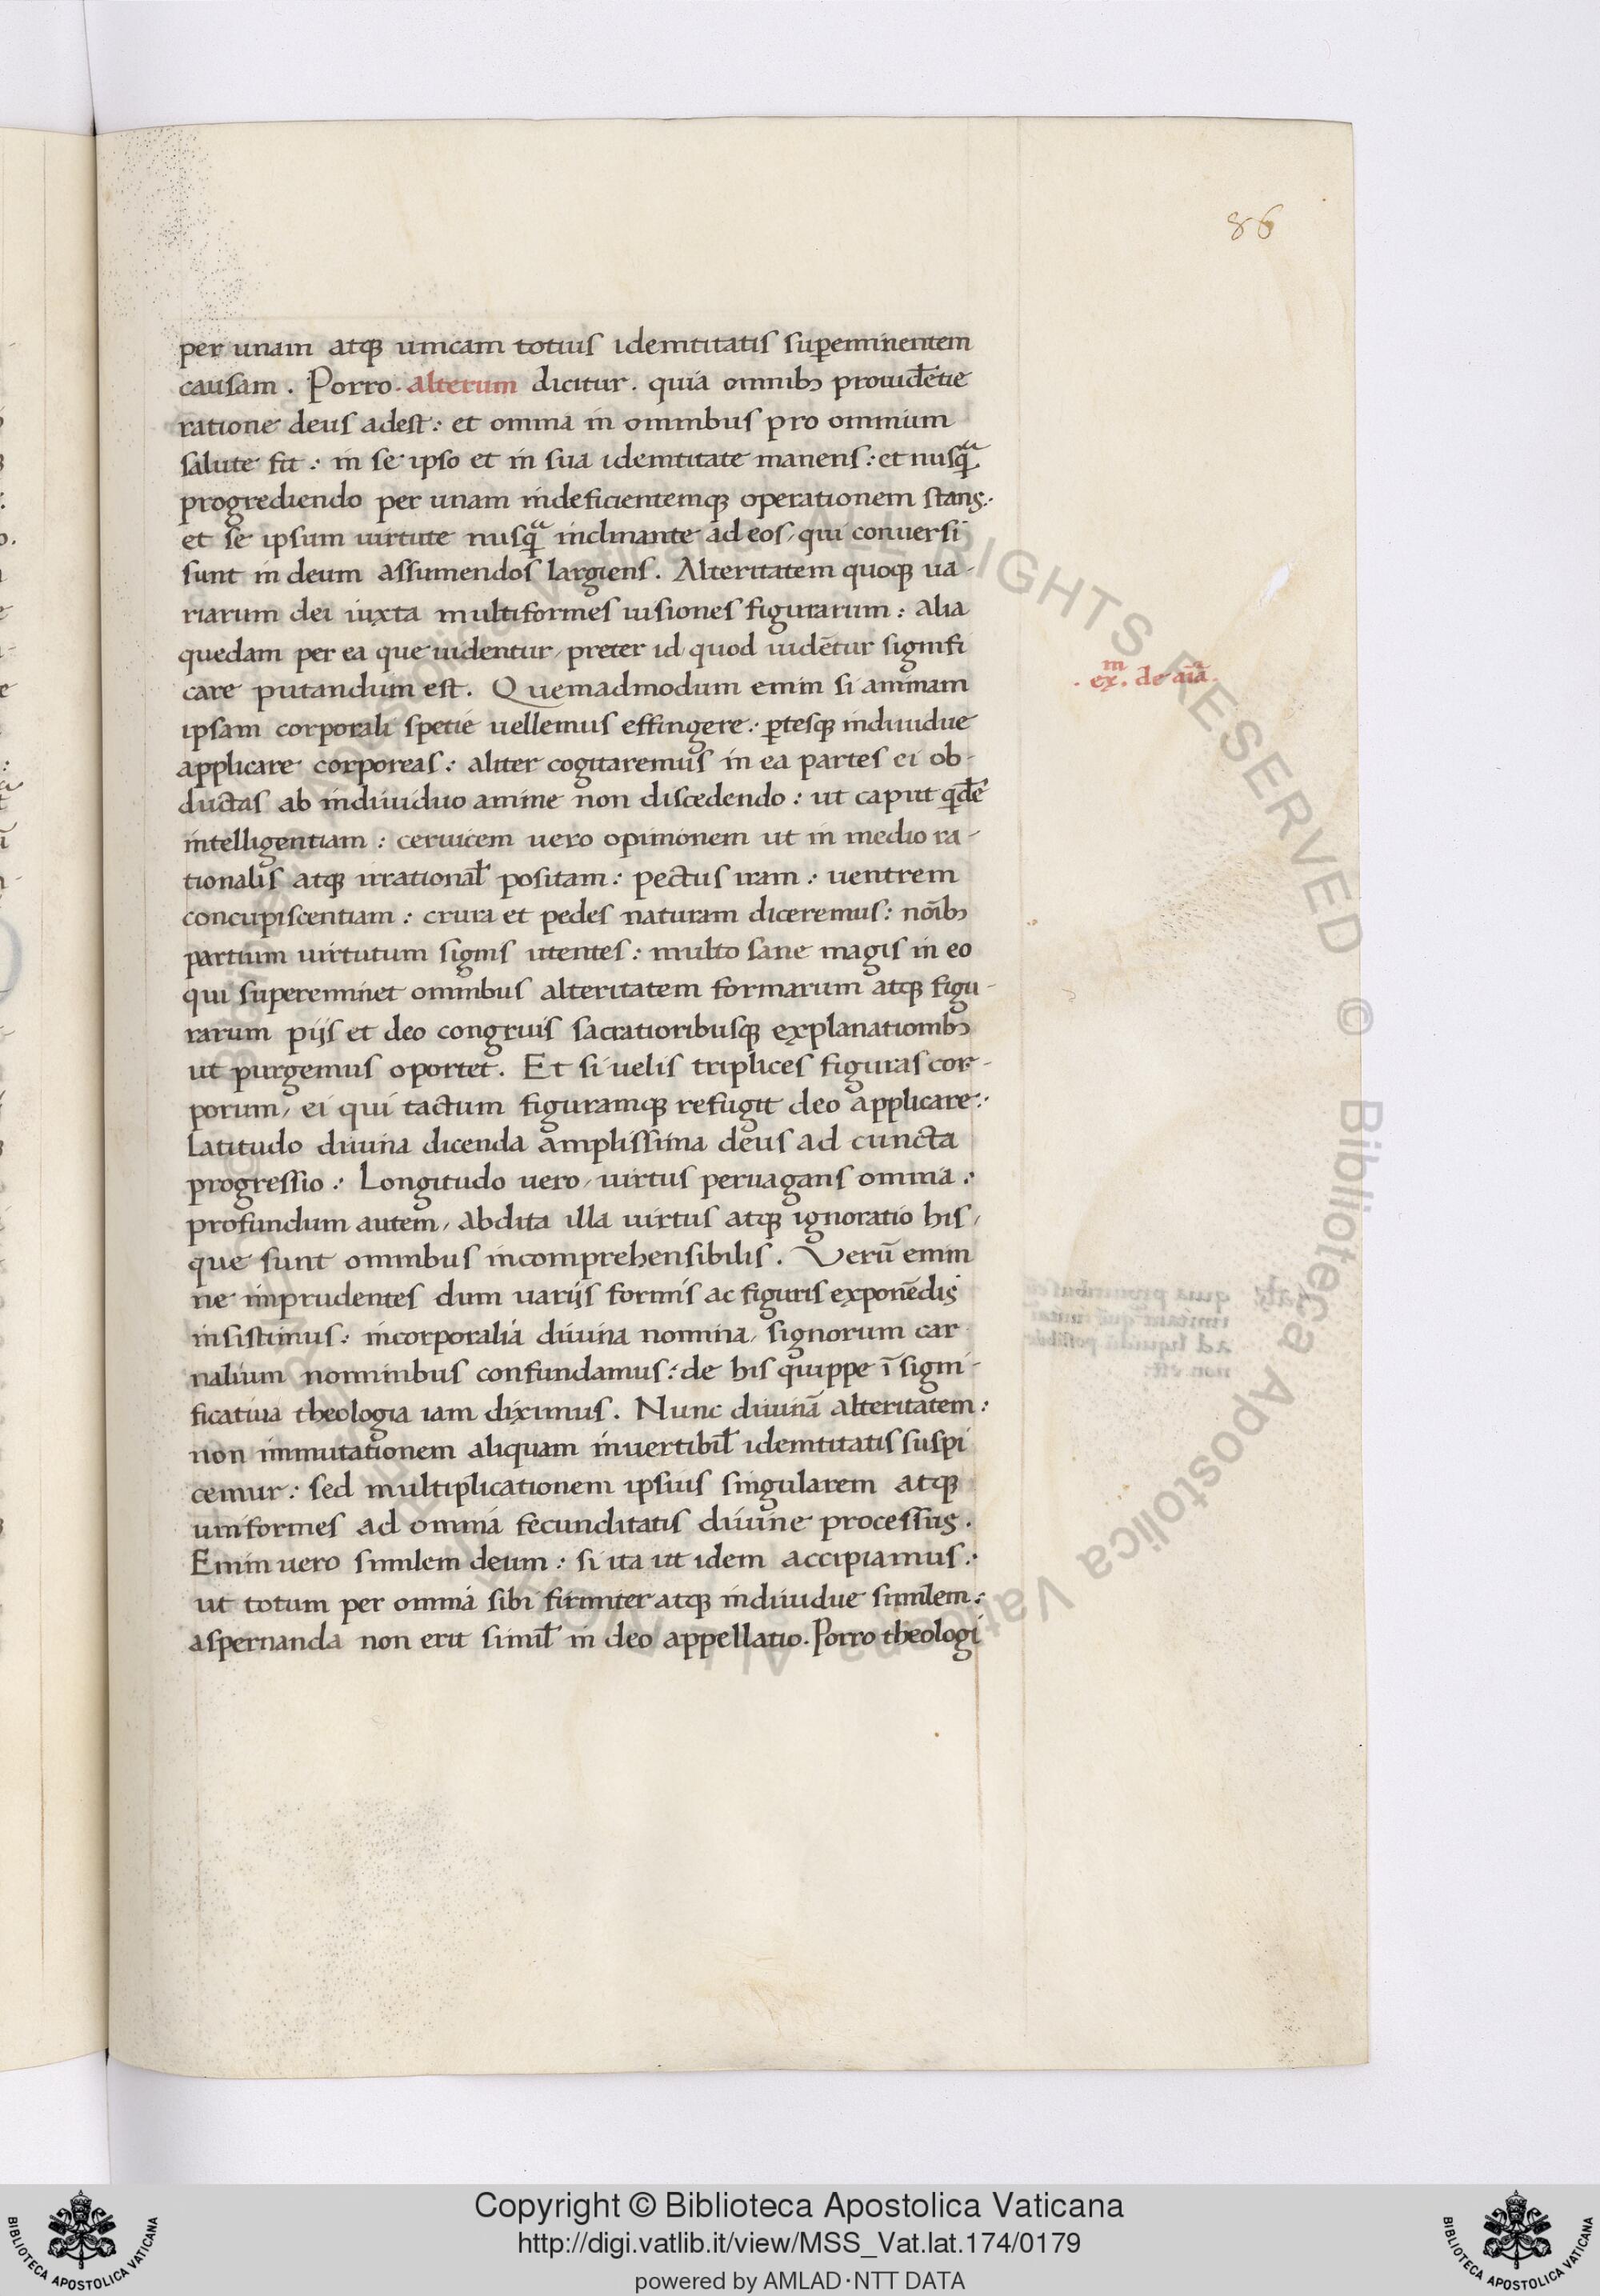 86
per unam atq; unicam totius idemtitatis supereminentem
causam. Porro. alterum dicitur. quia omnib; prouidētie
ratione deus adest: et omnia in omnibus pro omnium
salute fit: in se ipso et in sua idemtitate manens: et nusqᵃ
progrediendo per unam indeficientemq; operationem stans.
et se ipsum uirtute nusqᵃ inclinante ad eos, qui conuersi
sunt in deum assumendos largiens. Alteritatem quoq; ua-
riarum dei iuxta multiformes uisiones figurarum: alia
quedam per ea que uidentur, preter id quod uidētur signifi
care putandum est. Quemadmodum enim si animam
ipsam corporali spetie uellemus effingere: ꝑtesq; indiuidue
applicare corporeas: aliter cogitaremus in ea partes ei ob-
ductas ab indiuiduo anime non discedendo: ut caput qdē
intelligentiam: ceruicem uero opinionem ut in medio ra-
tionalis atq; irrational̄ positam: pectus iram: uentrem
concupiscentiam: crura et pedes naturam diceremus: nōib;
partium uirtutum signis utentes: multo sane magis in eo
qui supereminet omnibus alteritatem formarum atq; figu-
rarum pijs et deo congruis sacratioribusq; explanationib;
ut purgemus oportet. Et si uelis triplices figuras cor-
porum, ei qui tactum figuramq; refugit deo applicare:
Latitudo diuina dicenda amplissima deus ad cuncta
progressio: Longitudo uero, uirtus peruagans omnia:
profundum autem, abdita illa uirtus atq; ignoratio his,
que sunt omnibus incomprehensibilis. Verū enim
ne imprudentes dum uarijs formis ac figuris exponēdis
insistimus: incorporalia diuina nomina, signorum car
nalium nominibus confundamus: de his quippe ī signi-
ficatiua theologia iam diximus. Nunc diuinā alteritatem:
non immutationem aliquam inuertibil̄ idemtitatis suspi
cemur: sed multiplicationem ipsius singularem atq;
uniformes ad omnia fecunditatis diuine processus.
Enim uero similem deum: si ita ut idem accipiamus:
ut totum per omnia sibi firmiter atq; indiuidue similem:
aspernanda non erit simil̄ in deo appellatio. Porro theologi
. exᵐ. de aīa.
Copyright © Biblioteca Apostolica Vaticana
http://digi.vatlib.it/view/MSS_Vat.lat.174/0179
powered by AMLAD·NTT DATA
BIBLIOTECA APOSTOLICA VATICANA
BIBLIOTECA APOSTOLICA VATICANA